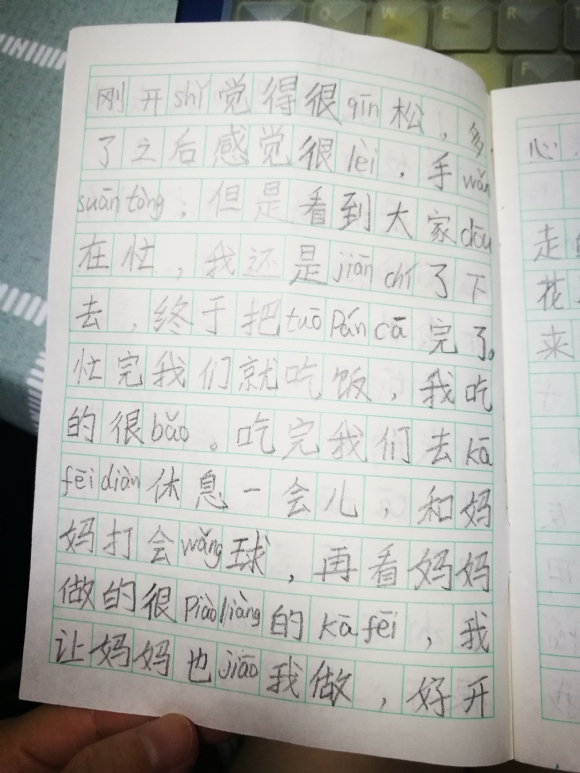 刚开shǐ觉得很qīn松，多
了之后感觉很lèi，手wǎn
suān tòng；但是看到大家dōu
在忙，我还是jiān chí了下
去，终于把tuō Pán cā完了。
忙完我们就吃饭，我吃
的很bǎo。吃完我们去kā
fēi diàn休息一会儿，和妈
妈打会wǎng球，再看妈妈
做的很Piào liàng的kā fēi，我
让妈妈也jiāo我做，好开
心
走
花
来